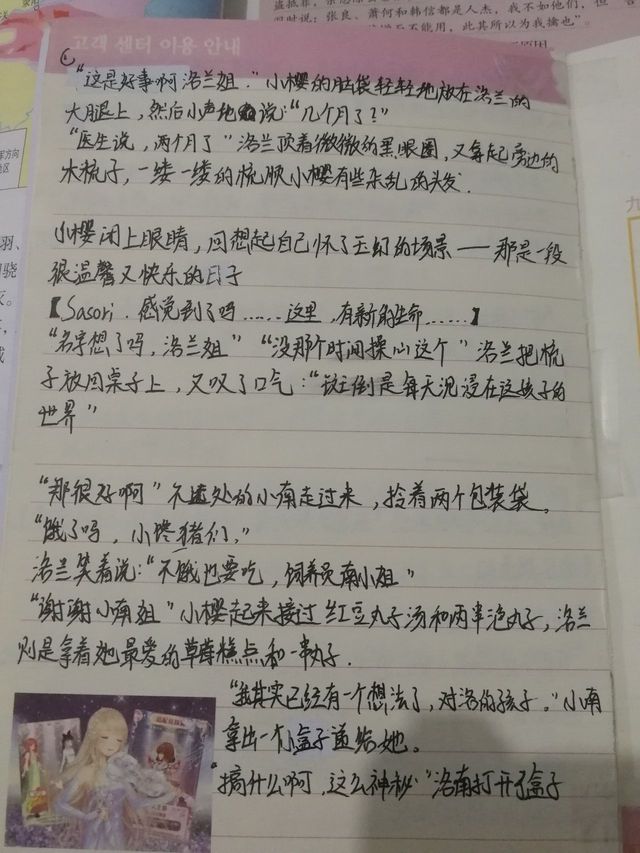 盗抵罪
时说：张良、萧何和韩信都是人杰，我不如他们，但
不能用，此其所以为我擒也”。
고객 센터 이용 안내
“这是好事啊洛兰姐.”小樱的脑袋轻轻地放在洛兰的
大腿上，然后小声地说：“几个月了？”
“医生说，两个月了”洛兰顶着微微的黑眼圈，又拿起旁边的
木梳子，一缕一缕的梳顺小樱有些杂乱的头发.
小樱闭上眼睛，回想起自己怀了玉幻的场景——那是一段
很温馨又快乐的日子
【Sasori.感觉到了吗……这里,有新的生命……】
“名字想了吗，洛兰姐”“没那个时间操心这个”洛兰把梳
子放回桌子上，又叹了口气：“斑倒是每天沉浸在这孩子的
世界”
“那很好啊”不远处的小南走过来，拎着两个包装袋。
“饿了吗，小馋猪们,”
洛兰笑着说：“不饿也要吃，饲养员南小姐”
“谢谢小南姐”小樱起来接过红豆丸子汤和两串泡丸子，洛兰
则是拿着她最爱的草莓糕点和一串丸子.
“我其实已经有一个想法了，对洛的孩子。”小南
拿出一个小盒子递给她。
“搞什么啊，这么神秘”洛南打开了盒子